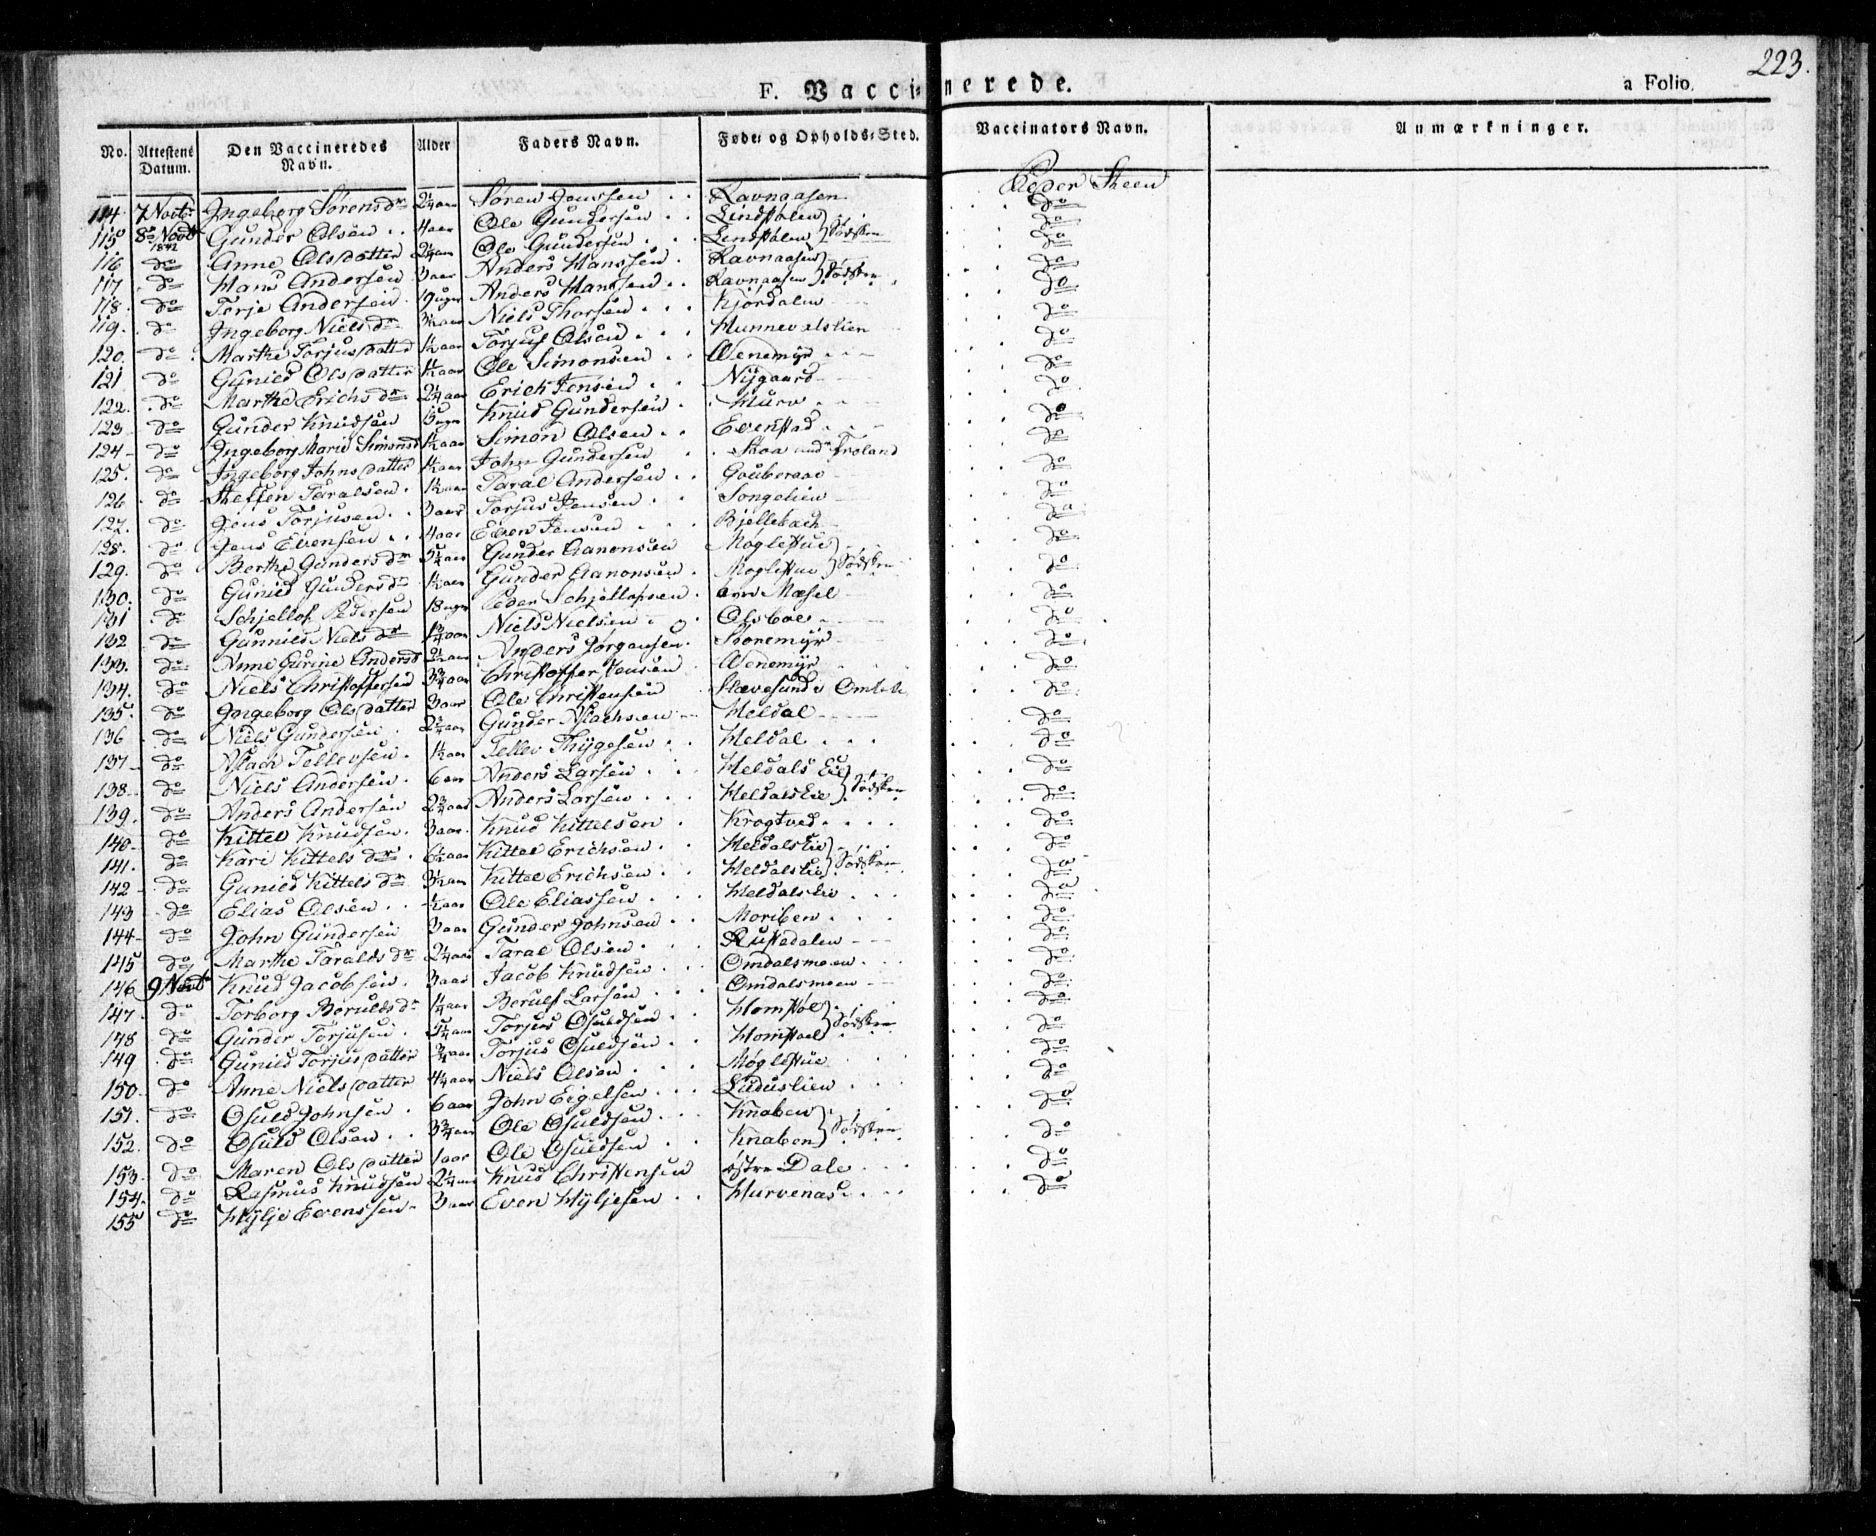 223.
F. Vaccinerede.
a Folio.
No. Attestens Datum. Den Vaccineredes Navn. Alder Faders Navn. Føde- og Opholds-Sted. Vaccinators Navn. Anmærkninger.
114. 7 Novbr Ingeborg Sørensdr 2¼ aar Søren Jonssen Ravnaasen Peder Steen
115 8de Novbr 1842 Gunder Olsen 4 aar Ole Gundersen Lindstølen } Sødsken do
116 do Anne Olsdatter 2¼ aar Ole Gundersen Lindstølen do
117 do Hans Andersen 3 aar Anders Hanssen Ravnaasen } Sødsken do
118. do Terje Andersen 19 uger Anders Hanssen Ravnaasen do
119. do Ingeborg Nielsdr Niels Thorsen Kjørdalen do
120. do Marthe Torjusdatter Torjus Olsen Hunnevalslien do
121 do Gunild Olsdatter Ole Simonsen Wenemyr do
122. do Marthe Erichsdr 2¼ aar Erich Jensen Nygaard do
123 do Gunder Knudsen Knud Gundersen Hurv do
124 do Ingeborg Marie Simonsd Simon Olsen Evenstad do
125. do Ingeborg Johnsdatter John Gundersen Stoa undr Froland do
126 do Steffen Taralsen Taral Andersen do
127. do Jens Torjusen 3 aar Torjus Jensen Songelien do
128. do Jens Evensen 4 aar Even Jensen Bjellebach do
129. do Berthe Gundersdr Gunder Aanonsen Moglestue } Sødsken do
130. do Gunild Gundersdr Gunder Aanonsen Moglestue do
131 do Schjellof Pedersen 18 uger Peder Schjellofsen øvre Mæsel do
132 do Gunnild Nielsdr Niels Nielsen Olsboe do
133. do Anne Gurine Andersd Anders Jørgensen Storemyr do
134. do Niels Christoffersen 3¾ aar Christoffer Jensen Wenemyr do
135. do Ingeborg Olsdatter 3 aar Ole Christensen do
136 do Niels Gundersen 2¼ aar Gunder Aslachsen Heldal do
137 do Aslach Tellevsen Tellev Thygesen Heldal do
138. do Niels Andersen 6 aar Anders Larsen Heldals Eie } Sødsken do
139. do Anders Andersen 2¾ aar Anders Larsen Heldalseie do
140 do Kittel Knudsen 3 aar Knud Kittelsen Krogtved do
141. do Kari Kittelsdr 6½ aar Kittel Erichsen Heldalseie } Sødsken do
142 do Gunild Kittelsdr 3½ aar Kittel Erichsen Heldalseie do
143 do Elias Olsen Ole Eliassen Heldalseie do
144 do John Gundersen 3 aar Gunder Johnsen Moriben do
145 do Marthe Taraldsdr 2¼ aar Taral Olsen Rustedalen do
146 9 Novbr Knud Jacobsen 3 aar Jacob Knudsen Omdalsmoen do
147 do Torborg Berulsdr Berulf Larsen Omdalsmoen do
148 do Gunder Torjusen Torjus Osuldsen Homstøl } Sødsken do
149 do Gunild Torjusdatter ¾ aar Torjus Osuldsen Homstøel do
150 do Anne Nielsdatter 4¼ aar Niels Olsen Møglestue do
151. do Osuld Johnsen 6 aar John Eigelsen Luduslien do
152. do Osuld Olsen 3¾ aar Ole Osuldsen Knaben } Sødsken do
153 do Maren Olsdatter 1 aar Ole Osuldsen Knaben do
154. do Rasmus Knudsen 2¼ aar Knud Christensen østre Dale do
155 do Hylje Evenssen 3 aar Even Hyljesen Hurvenæs do